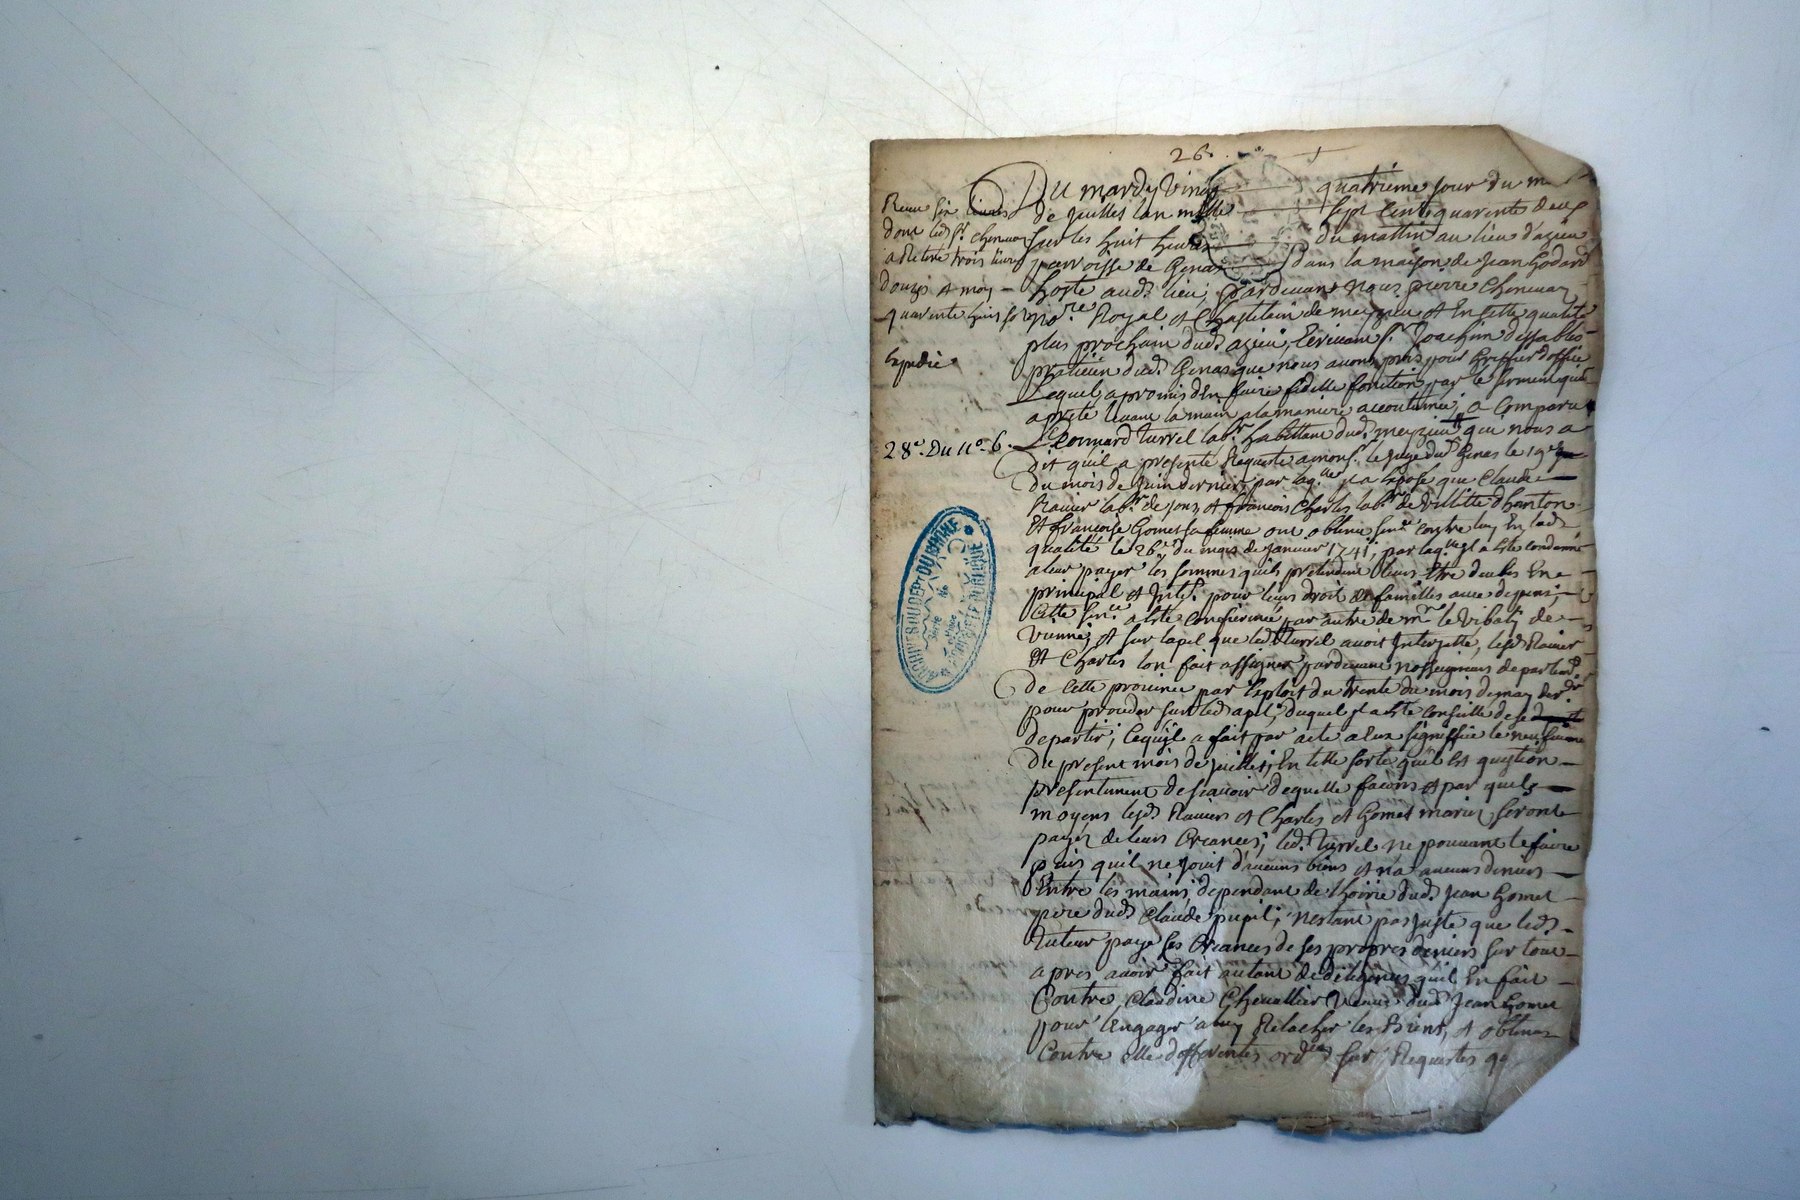 26.
Du mardy vingt quatrieme jour du mois
de juillet lan mille sept cent quarente deux
sur les huit heures du mattin au lieu d'azieu
parroisse de Genas dans la maison de Jean Godard
hoste aud. lieu, pardevant nous pierre Chenevaz
no.re Royal et Chastelain de meyzieu et En cette qualité
plus prochain dud. azieu, Ecrivant s.r Joachin dessablo
praticien dud. Genas que nous avons pris pour Greffier doffice
Lequel a promis dEn faire fidelle fonction par le serment quil
a preté levant la main a la maniere accoutumée, a Comparu
Leonnard turrel lab.r habittant dud. meyzieu qui nous a
dit quil a presenté Requeste a mons.r le juge dud. Genas le 19e
du mois de juin dernier, par laq.lle il a Exposé que Claude
Ravier lab.r de jons, et francois Charles lab.r de villette d'hanton
Et francoise Gomet sa femme ont obtenu sen.ce contre luy En lad.
qualité le 26e du mois de janvier 1741, par laq.lle il a esté condamné
a leur payer les sommes quils pretendent leurs Etre deubes En
principal et jnte.t pour leurs droit de familles avec depens,
Cette sen.ce a esté confirmée par autre de m.r le vibally de
vienne, et sur lapel que led. turrel avoit Interjetté, lesd. Ravier
Et Charles lon fait assigner pardevant nosseigneurs de parlem.t
de cette province par Exploit du trente du mois de may der.r
pour proceder sur led. apel, duquel il a esté conseillé de se
departir, Ce quil a fait par acte a Eux signiffié le neufvieme
du present mois de juillet, En telle sorte quil Est question
presentement de scavoir de quelle facons et par quels
moyens lesd. Raviers et Charles et Gomet mariez seront
payez de leurs Creances, led. turrel ne pouvant le faire
puis quil ne jouit d'aucuns biens et n'a aucuns deniers
Entre les mains, dependant de lhoirie dud. Jean Gomet
pere dud. Claude pupil, n'estant pas juste que led.
tuteur paye ses Creances de ses propres deniers sur tout
apres avoir fait autant de diligences quil En fait
Contre Claudine Chevallier veuve dud. Jean Gomet
pour lengager a luy Relacher les Biens, et obtenu
Contre elle differentes ord.ces sur Requestes q
Receu six livres
dont led. s.r chenevaz
a Retiré trois livres
douze s et moy
quarente huit sols
Expedié
28e. Du n.o 6.
ARCHIVES DU DEPT DU RHONE
PROPRIETE PUBLIQUE